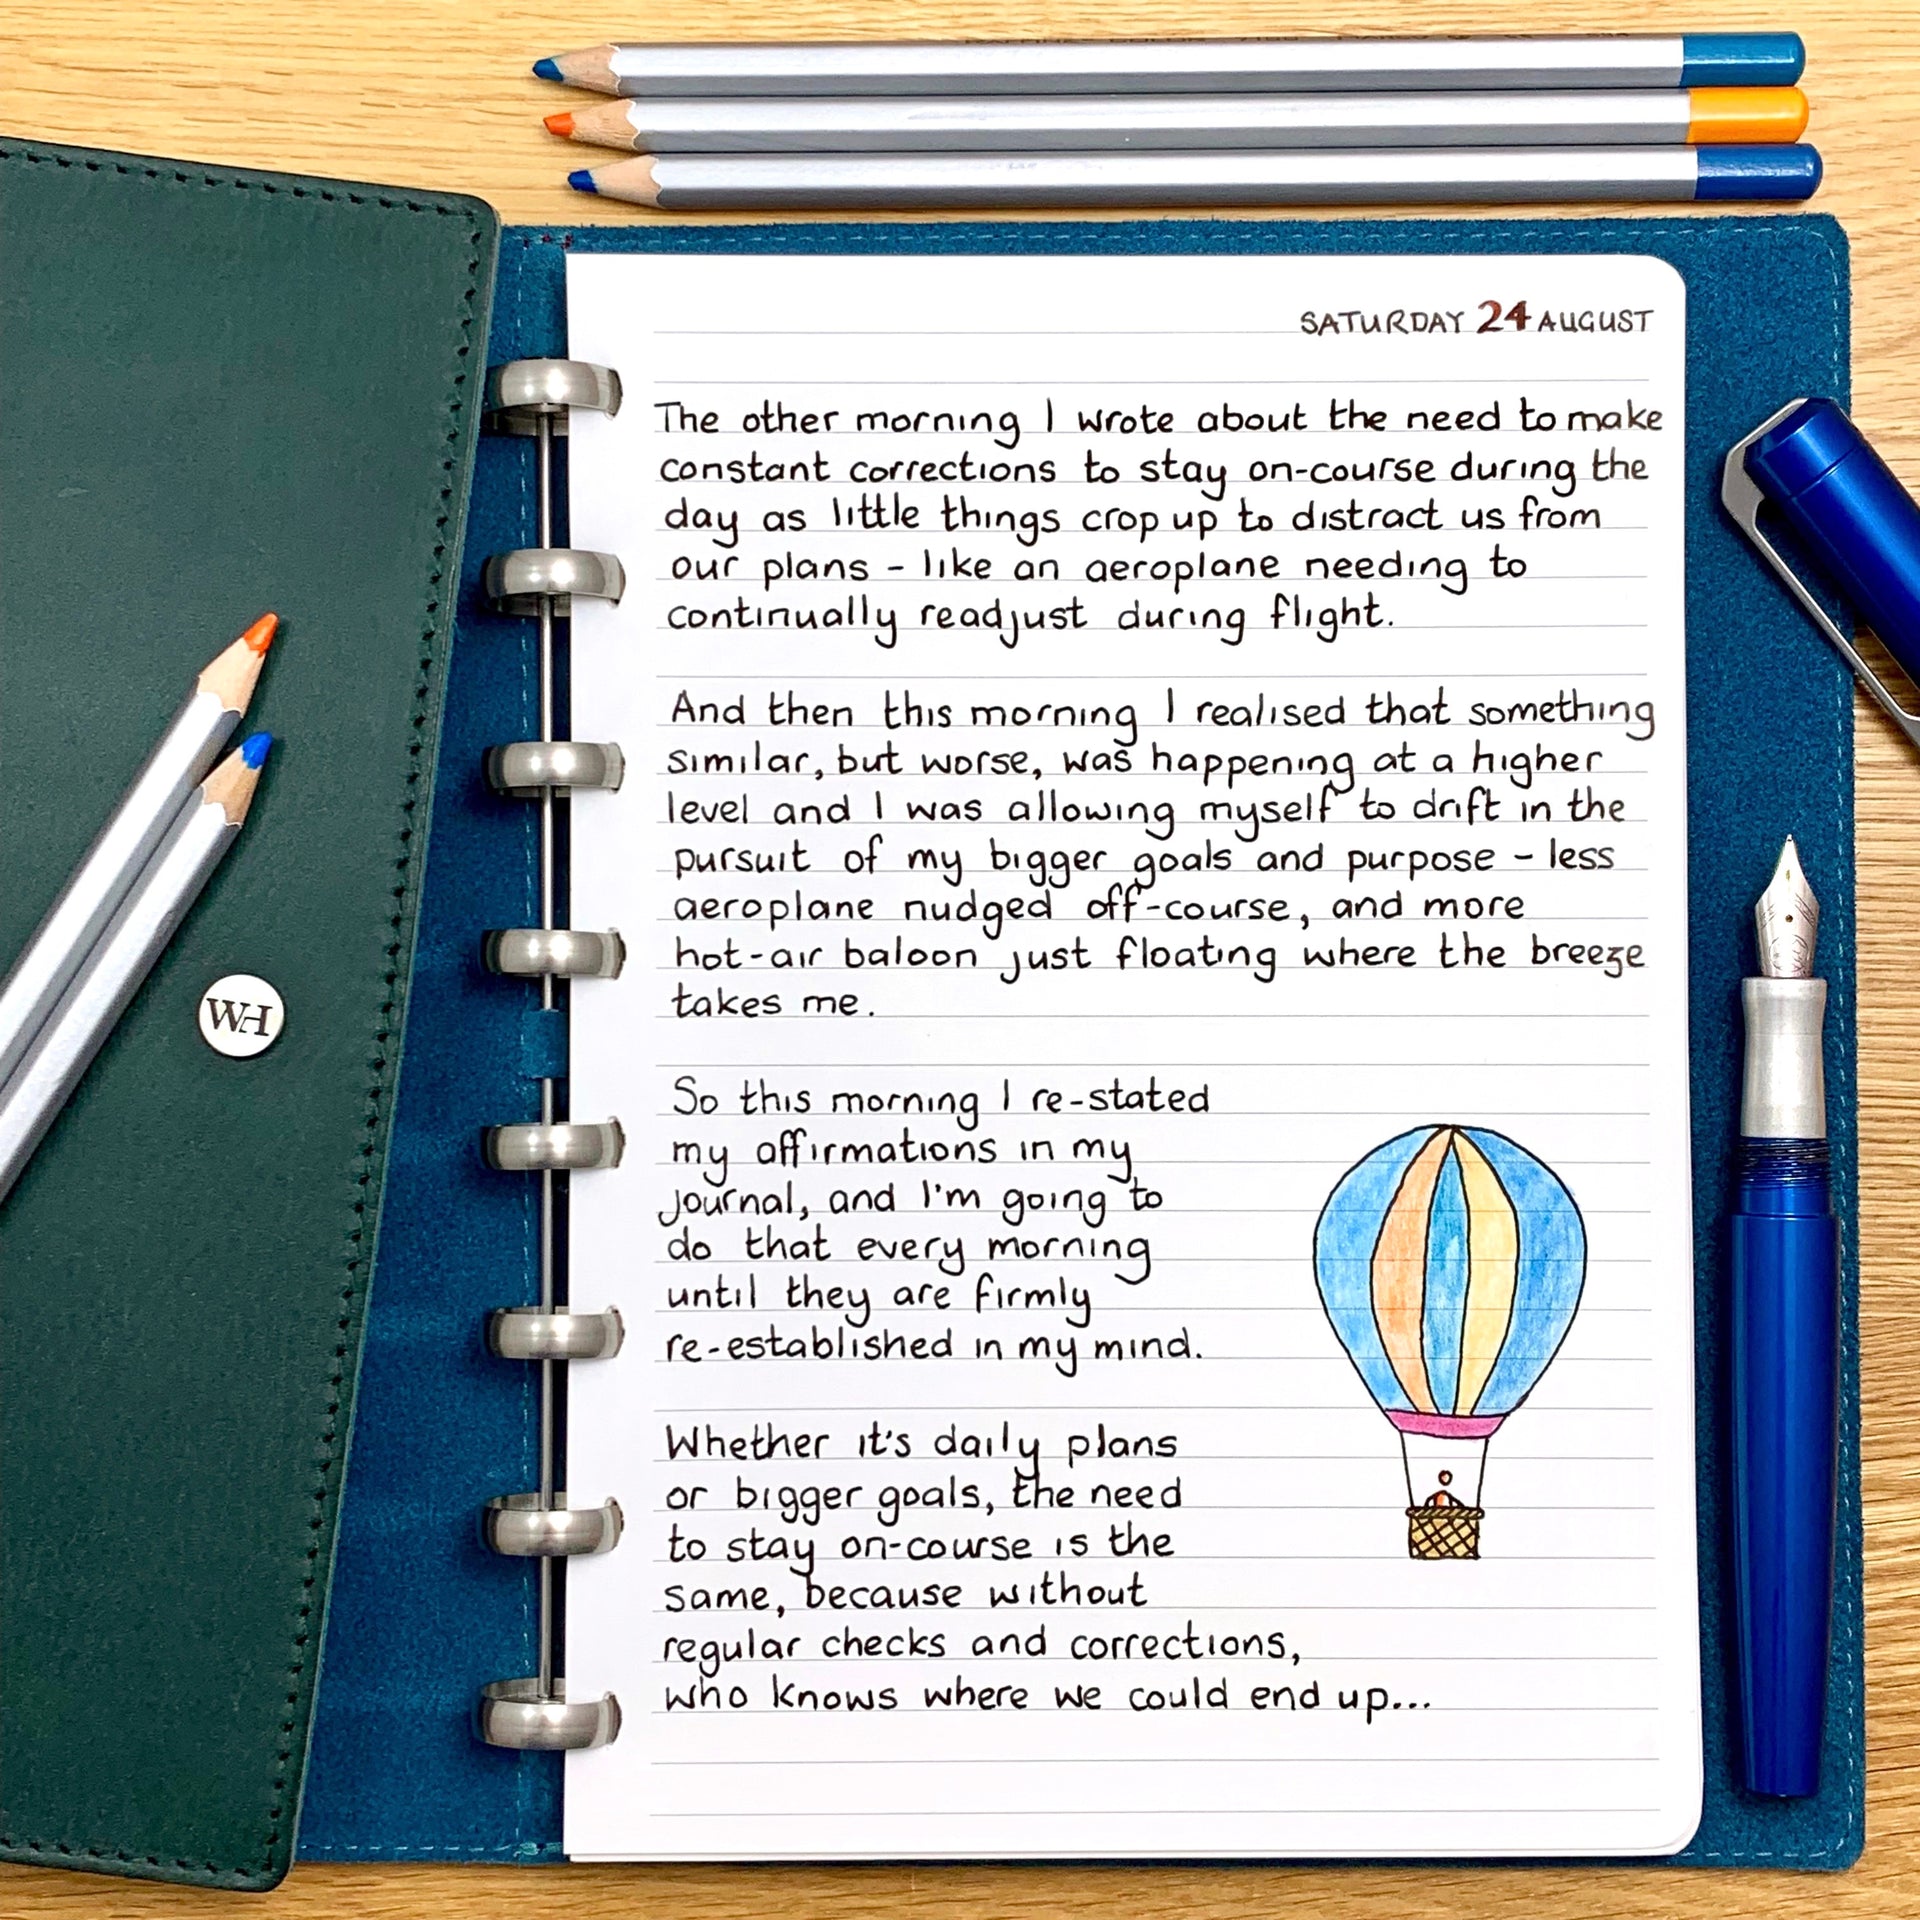 SATURDAY 24 AUGUST
The other morning I wrote about the need to make
constant corrections to stay on-course during the
day as little things crop up to distract us from
our plans - like an aeroplane needing to
continually readjust during flight.
And then this morning I realised that something
similar, but worse, was happening at a higher
level and I was allowing myself to drift in the
pursuit of my bigger goals and purpose - less
aeroplane nudged off-course, and more
hot-air baloon just floating where the breeze
takes me.
So this morning I re-stated
my affirmations in my
journal, and I'm going to
do that every morning
until they are firmly
re-established in my mind.
Whether it's daily plans
or bigger goals, the need
to stay on-course is the
same, because without
regular checks and corrections,
who knows where we could end up...
WH